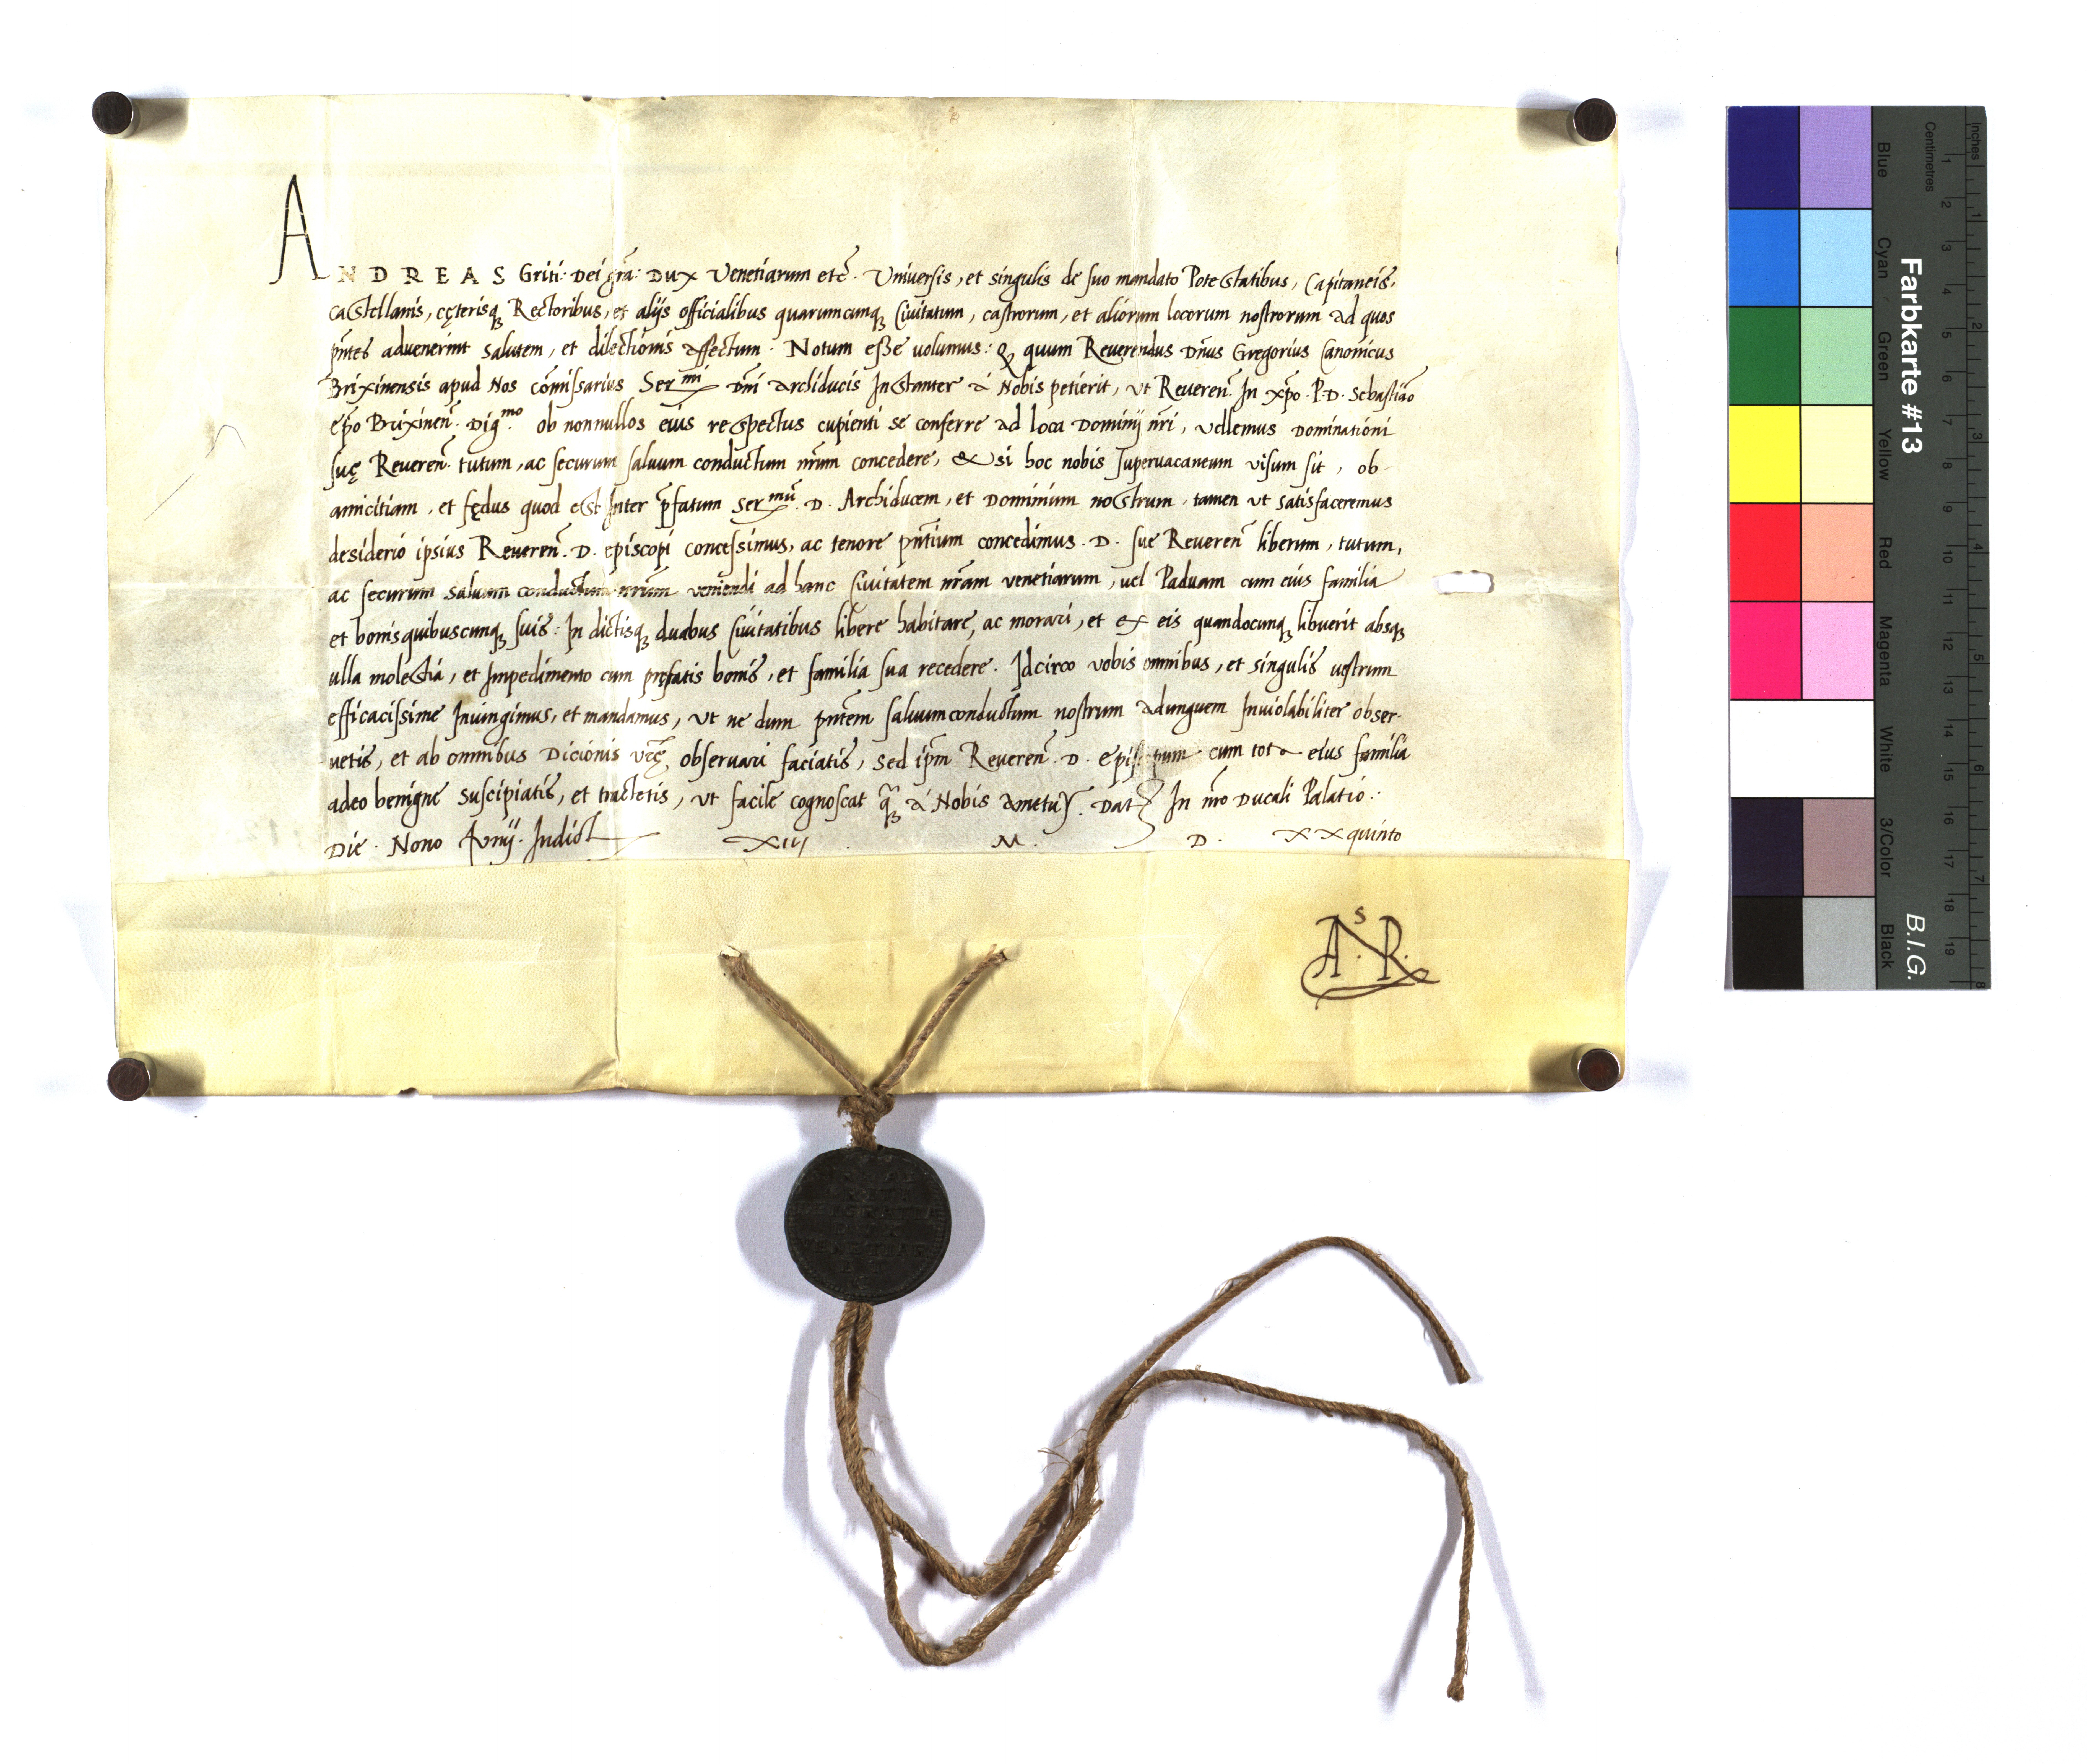 ANDREAS Griti: Dei grã: Dux Venetiarum etc̃. Universis, et singulis de suo mandato Potestatibus, Capitaneis,
castellanis, cęterisq3 Rectoribus, et alijs officialibus quarumcunq3 Civitatum, castrorum, et aliorum locorum nostrorum ad quos
pñtes advenerint salutem, et dilectionis affectum. Notum esse volumus: Q3 quum Reverendus Dñus Gregorius Canonicus
Brixinensis apud Nos cõmissarius Ser.mi Dñi Archiducis Instanter à Nobis petierit, ut Reveren̄. In xp̃o. P. D. Sebastião
ep̃o Brixinen̄. Dig.mo ob nonnullos eius respectus cupienti se conferre ad loca Dominij nr̃i, vellemus Dominationi
suę Reveren̄. tutum, ac securum salvum conductum nr̃um concedere, & si hoc nobis supervacaneum visum sit, ob-
amicitiam, et fędus quod est Inter p̃fatum Ser.mũ. D. Archiducem, et Dominium nostrum, tamen ut satisfaceremus
desiderio ipsius Reveren̄. D. episcopi concessimus, ac tenore pñtium concedimus. D. sue Reveren̄ liberum, tutum,
ac securum salvum conductum nr̃um veniendi ad hanc Civitatem nr̃am venetiarum, vel Paduam cum eius familia
et bonis quibuscunq3 suis: In dictisq3 duabus Civitatibus libere habitare, ac morari, et ex eis quandocunq3 libuerit absq3
ulla molestia, et Impedimento cum prefatis bonis, et familia sua recedere. Idcirco vobis omnibus, et singulis vestrum
efficacissime Iniungimus, et mandamus, ut ne dum pñtem salvumconductum nostrum adunguem Inviolabiliter obser-
vetis, et ab omnibus Dicionis vr̃ę, observari faciatis, sed ip̃m Reveren̄. D. Episcopum cum tota eius familia
adeo benigne suscipiatis, et tractetis, ut facile cognoscat q̃3 à Nobis ametur. Dat In nr̃o Ducali Palatio.
Die. Nono Iunij. Indict XIII. M. D. XXquinto
A.s R.
DEI GRATIA
DUX
VENETIAR
ET
Farbkarte #13
B.I.G.
Inches
Centimetres
1 2 3 4 5 6 7 8
1 2 3 4 5 6 7 8 9 10 11 12 13 14 15 16 17 18 19
Blue
Cyan
Green
Yellow
Red
Magenta
White
3/Color
Black